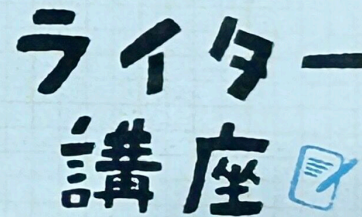 ライター
講座